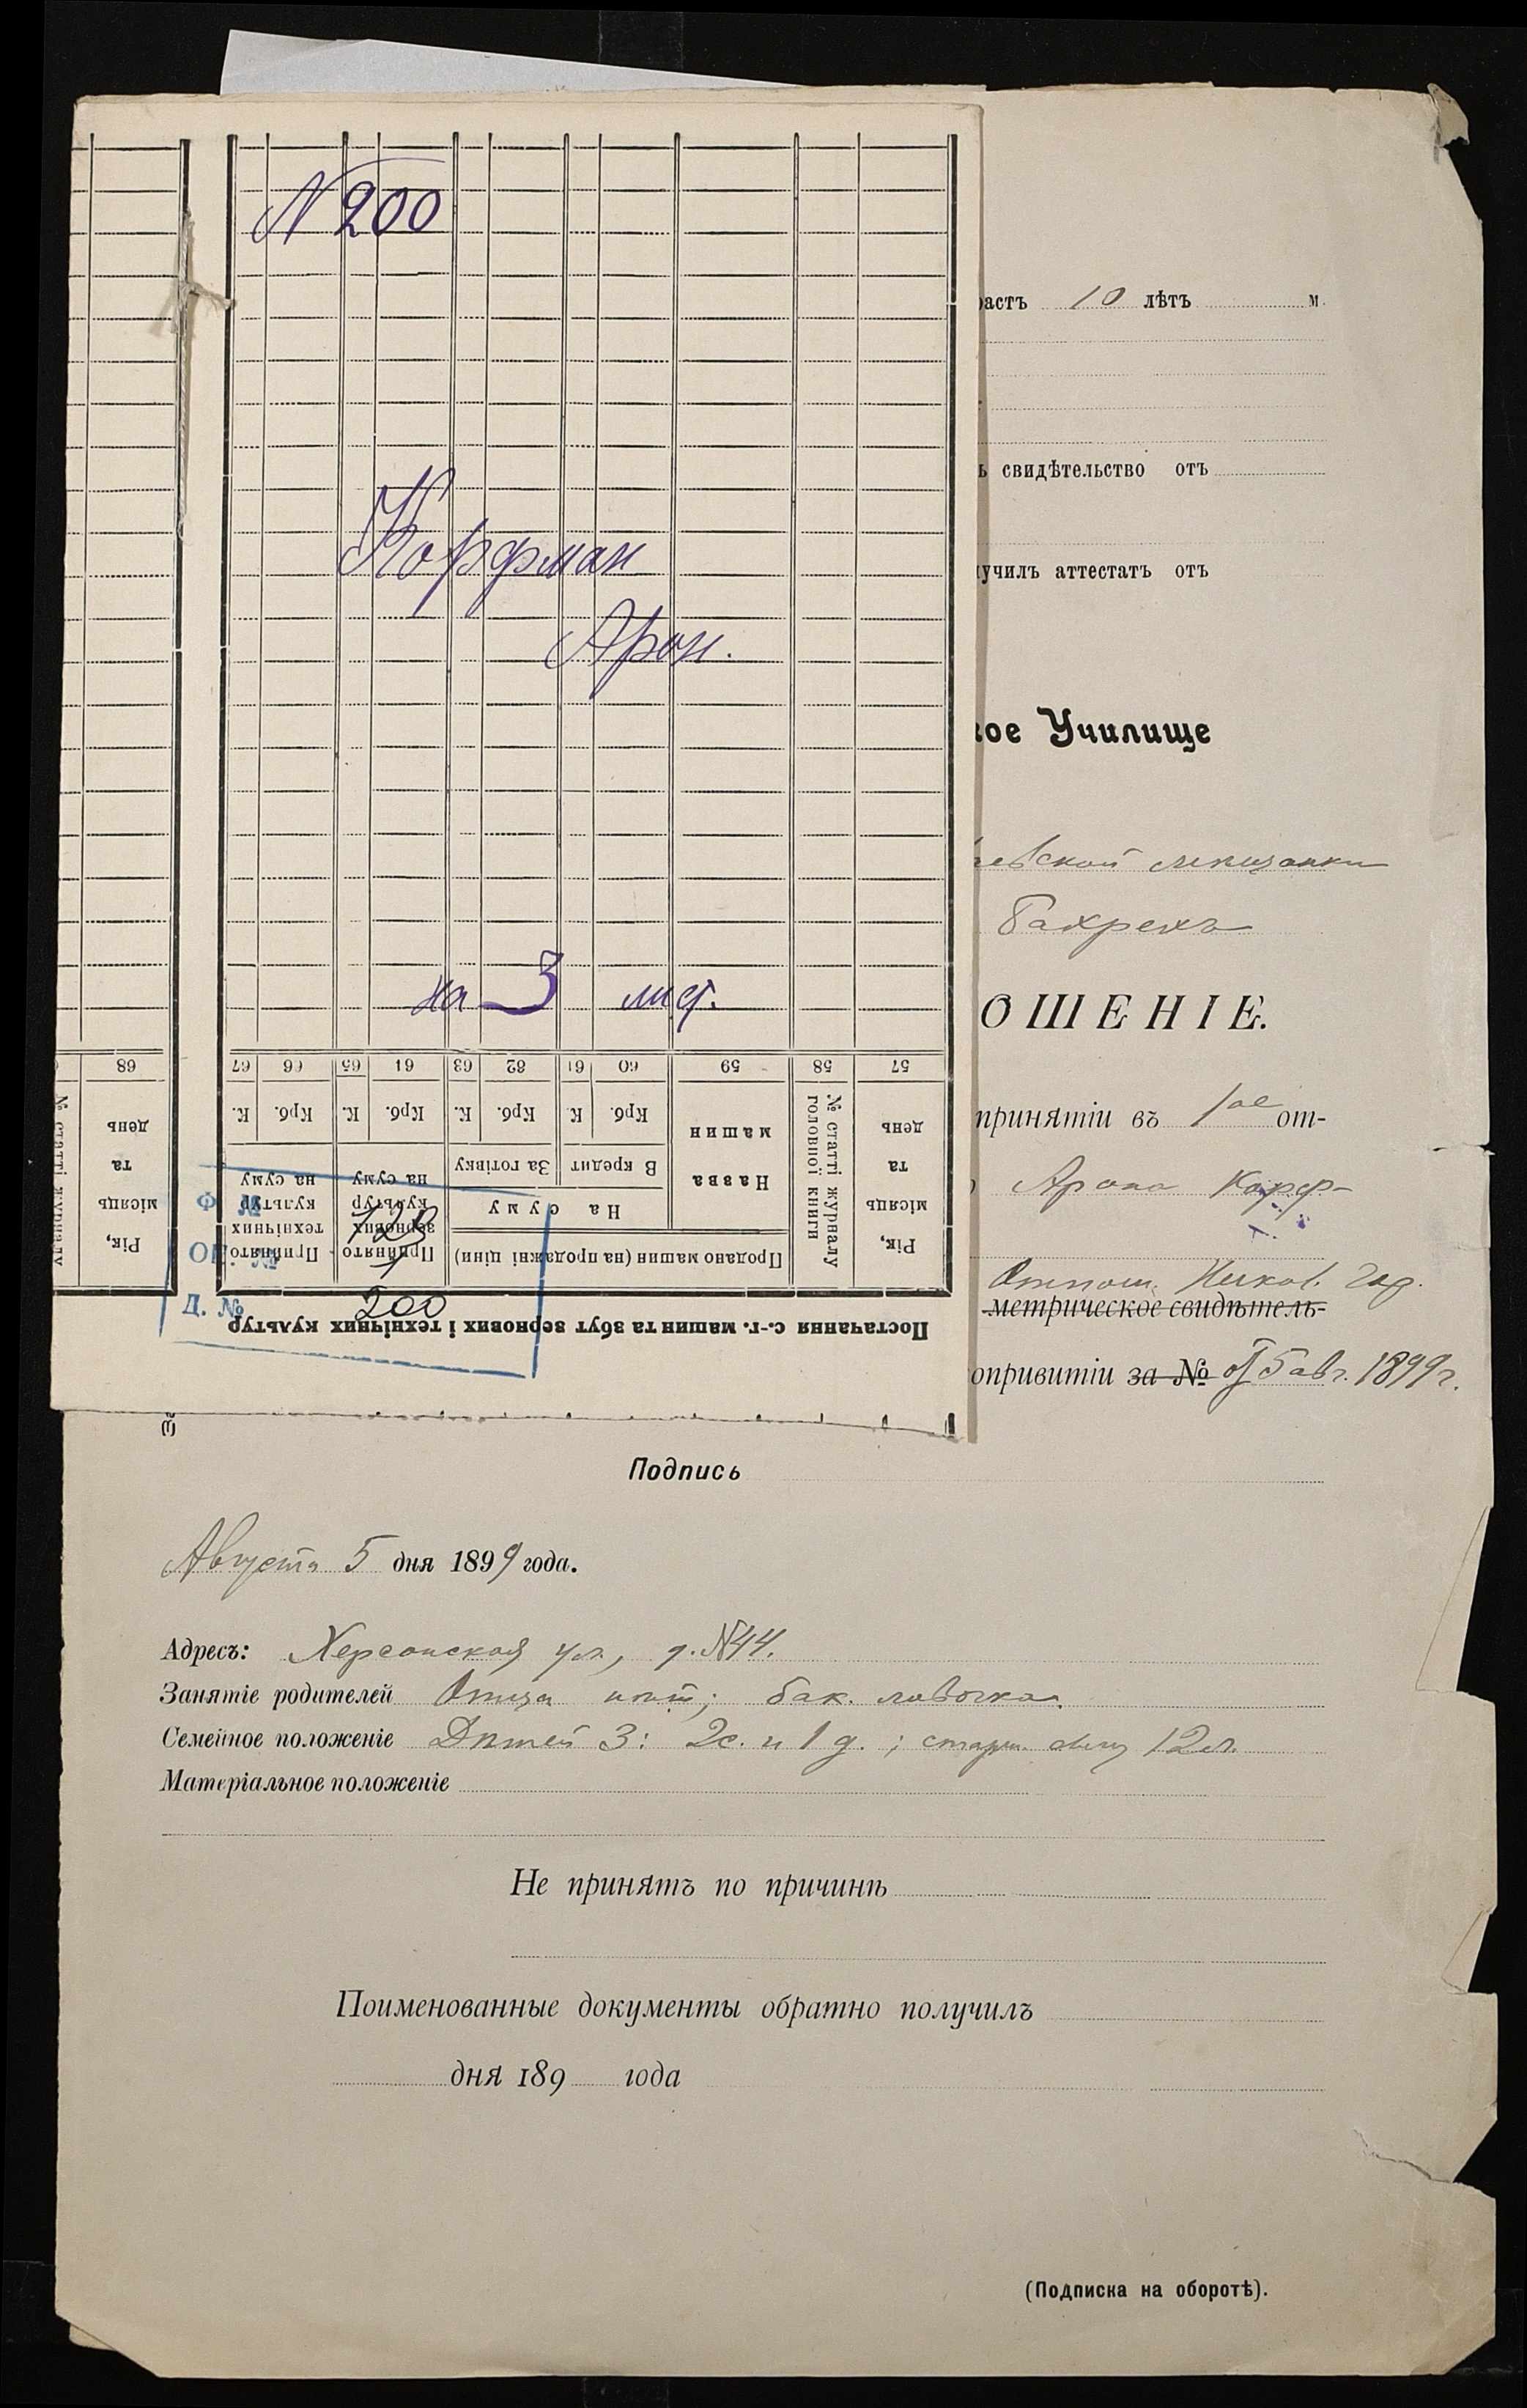 N 200
Корфман
Арон.
на 3 лист.
68 67 66 65 64 63 62 61 60 59 58 57
К. Крб. К. Крб. К. Крб. К. Крб.
Рік, місяць та день
№ статті журналу головної книги
Назва машин
На суму
В кредит
За готівку
Продано машин (на продажні ціни)
Прийнято зернових культур на суму
Прийнято технічних культур на суму
Рік, місяць та день
№ статті журналу
Ф. №
129
ОП. №
1
Д. №
200
Постачання с.-г. машин та збут зернових і технічних культур
растъ 10 лѣтъ м.
ь свидѣтельство отъ
училъ аттестатъ отъ
кое Училище
мѣщанки
Бахрехъ
ОШЕНІЕ.
принятіи въ 1ое от-
Арона Корф-
метрическое свидѣтель-
опривитіи за № от 5 авг. 1899 г.
Подпись
Августа 5 дня 1899 года.
Адресъ: Херсонская ул., д. N44.
Занятіе родителей Отца нѣт; бак. лавочка.
Семейное положеніе Дѣтей 3: 2 с. и 1 д.; старш. сыну 12 л.
Матеріальное положеніе
Не принятъ по причинѣ
Поименованные документы обратно получилъ
дня 189 года
(Подписка на оборотѣ).